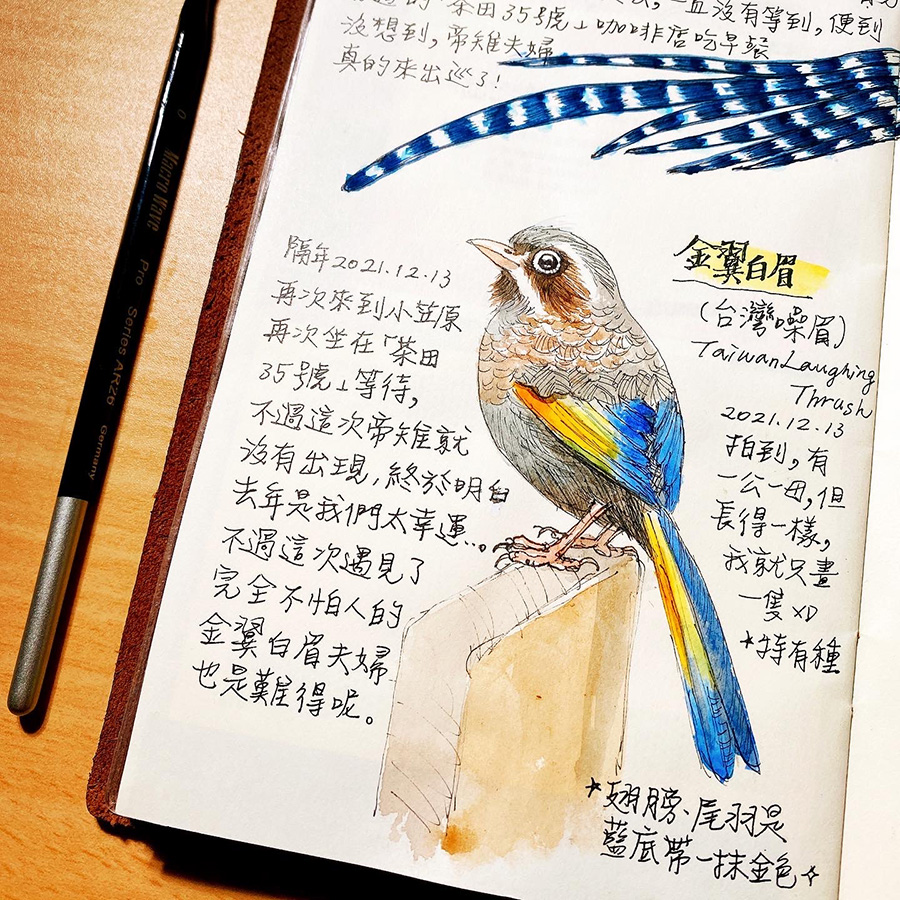 茶田35號」咖啡店吃早餐
一直沒有等到,便到
沒想到,帝雉夫婦
真的來出巡了!
隔年2021.12.13
再次來到小笠原
再次坐在「茶田
35號」等待,
不過這次帝雉就
沒有出現,終於明白
去年是我們太幸運...。
不過這次遇見了
完全不怕人的
金翼白眉夫婦
也是難得呢。
金翼白眉
(台灣噪眉)
Taiwan Laughing
Thrush
2021.12.13
拍到,有
一公一母,但
長得一樣,
我就只畫
一隻XD
*特有種
*翅膀、尾羽是
藍底帶一抹金色
0 Macro Wave Pro Series ARZ8 Germany